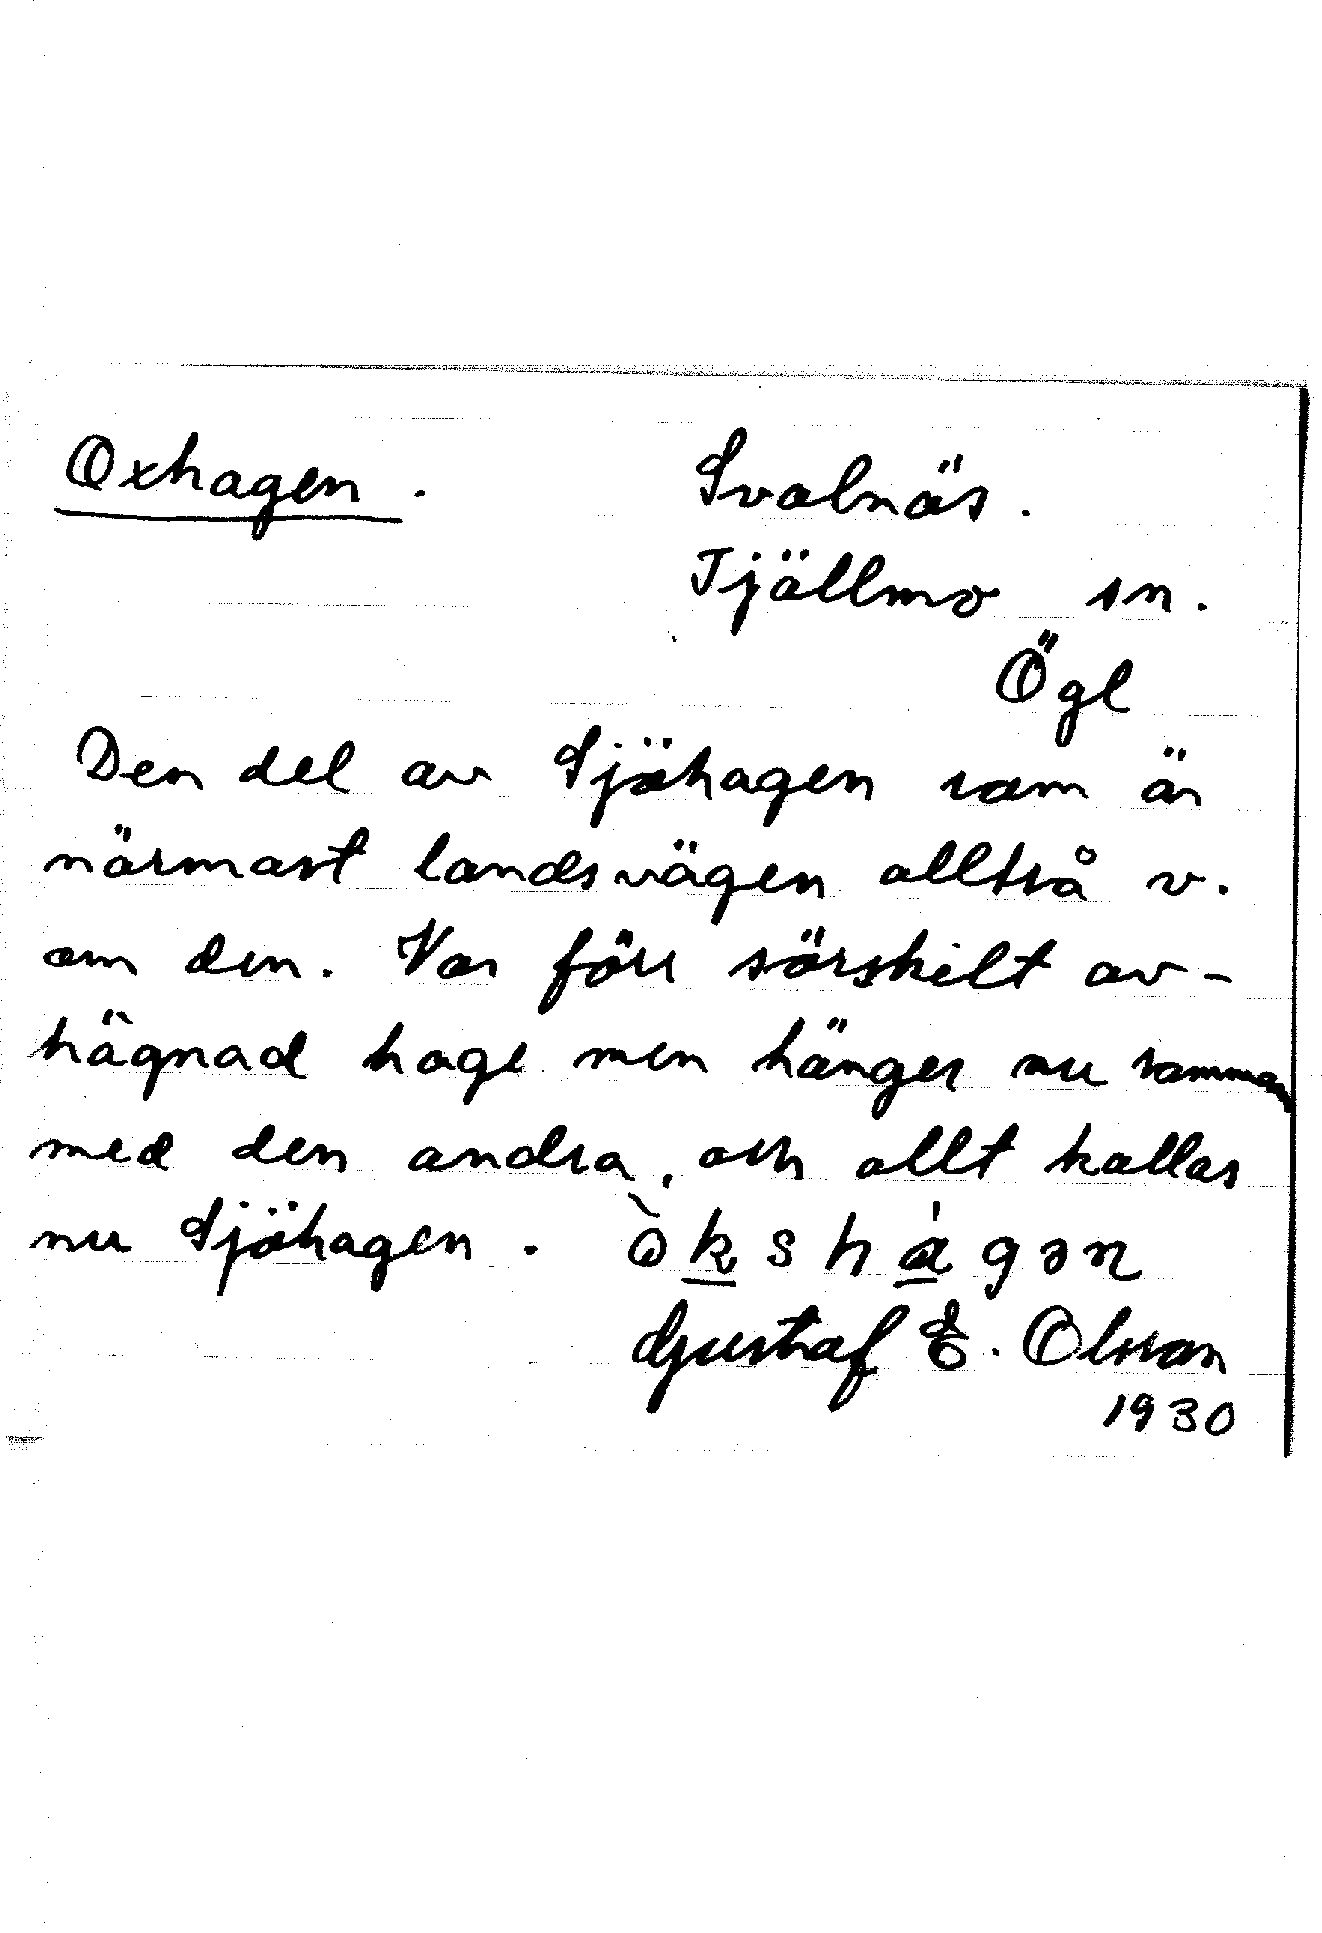 Oxhagen. Svalnäs.
Tjällmo sn.
Ögl
Den del av Sjöhagen som är
närmast landsvägen alltså v.
om den. Var förr särskilt av-
hägnad hage men hänger nu samman
med den andra, och allt kallas
nu Sjöhagen. òkshágən
Gustaf E. Olsson
1930